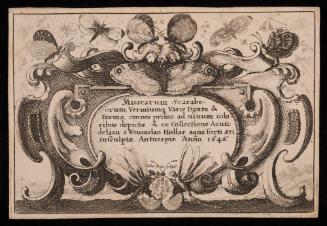 Muscarum Scarabe-
orum, Vermiumq; Varie Figure &
Formæ, omnes primo ad uiuum colo
ribus depictæ & ex Collectione Arun-
delian a Wenceslao Hollar aqua forti æri
insculptæ. Antuerpiæ Anno 1646.